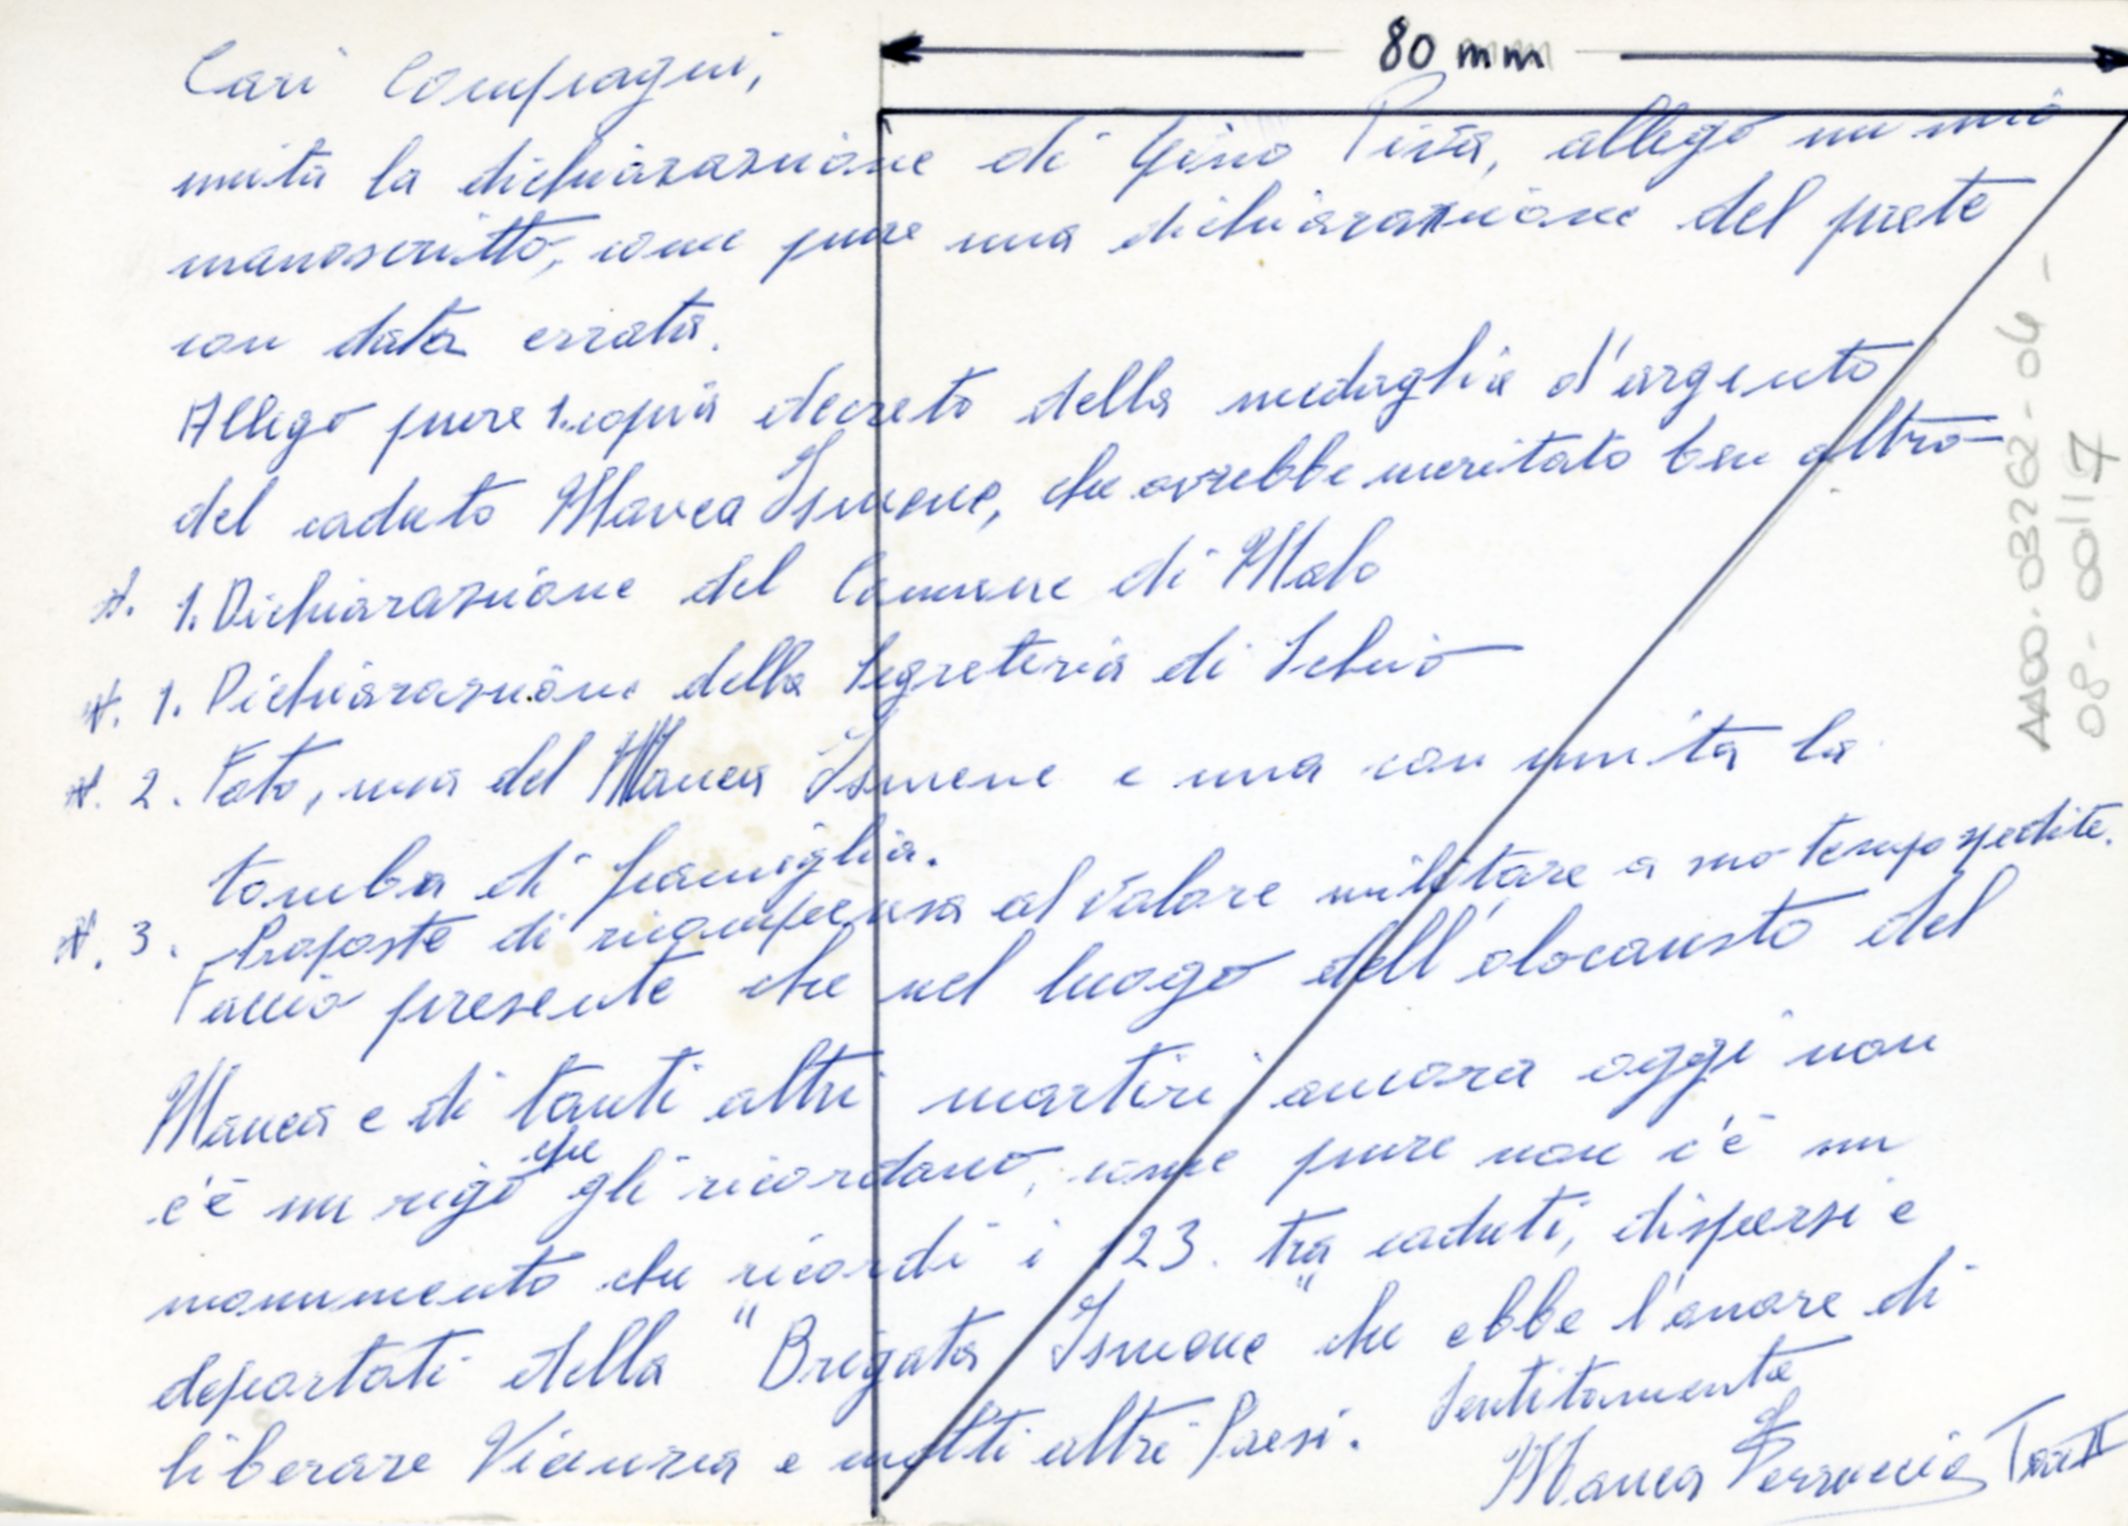 80 mm
Cari Compagni,
unita la dichiarazione di Gino Piva, allego un mio
manoscritto, come pure una dichiarazione del prete
con data errata.
Allego pure 1. copia decreto della medaglia d'argento
del caduto Manea Ismene, che avrebbe meritato ben altro
N. 1. Dichiarazione del Comune di Malo
N. 1. Dichiarazione della Segreteria di Schio
N. 2. Foto, una del Manea Ismene e una con unita la
tomba di famiglia.
N. 3. Proposte di ricompensa al valore militare a suo tempo spedite.
Faccio presente che nel luogo dell'olocausto del
Manea e di tanti altri martiri ancora oggi non
c'è un rigo che gli ricordano, come pure non c'è un
monumento che ricordi i 123. tra caduti, dispersi e
deportati della "Brigata Ismene" che ebbe l'onore di
liberare Vicenza e molti altri Paesi. Sentitamente
Manea Ferruccio
AAOO.03262-04-
08-00117